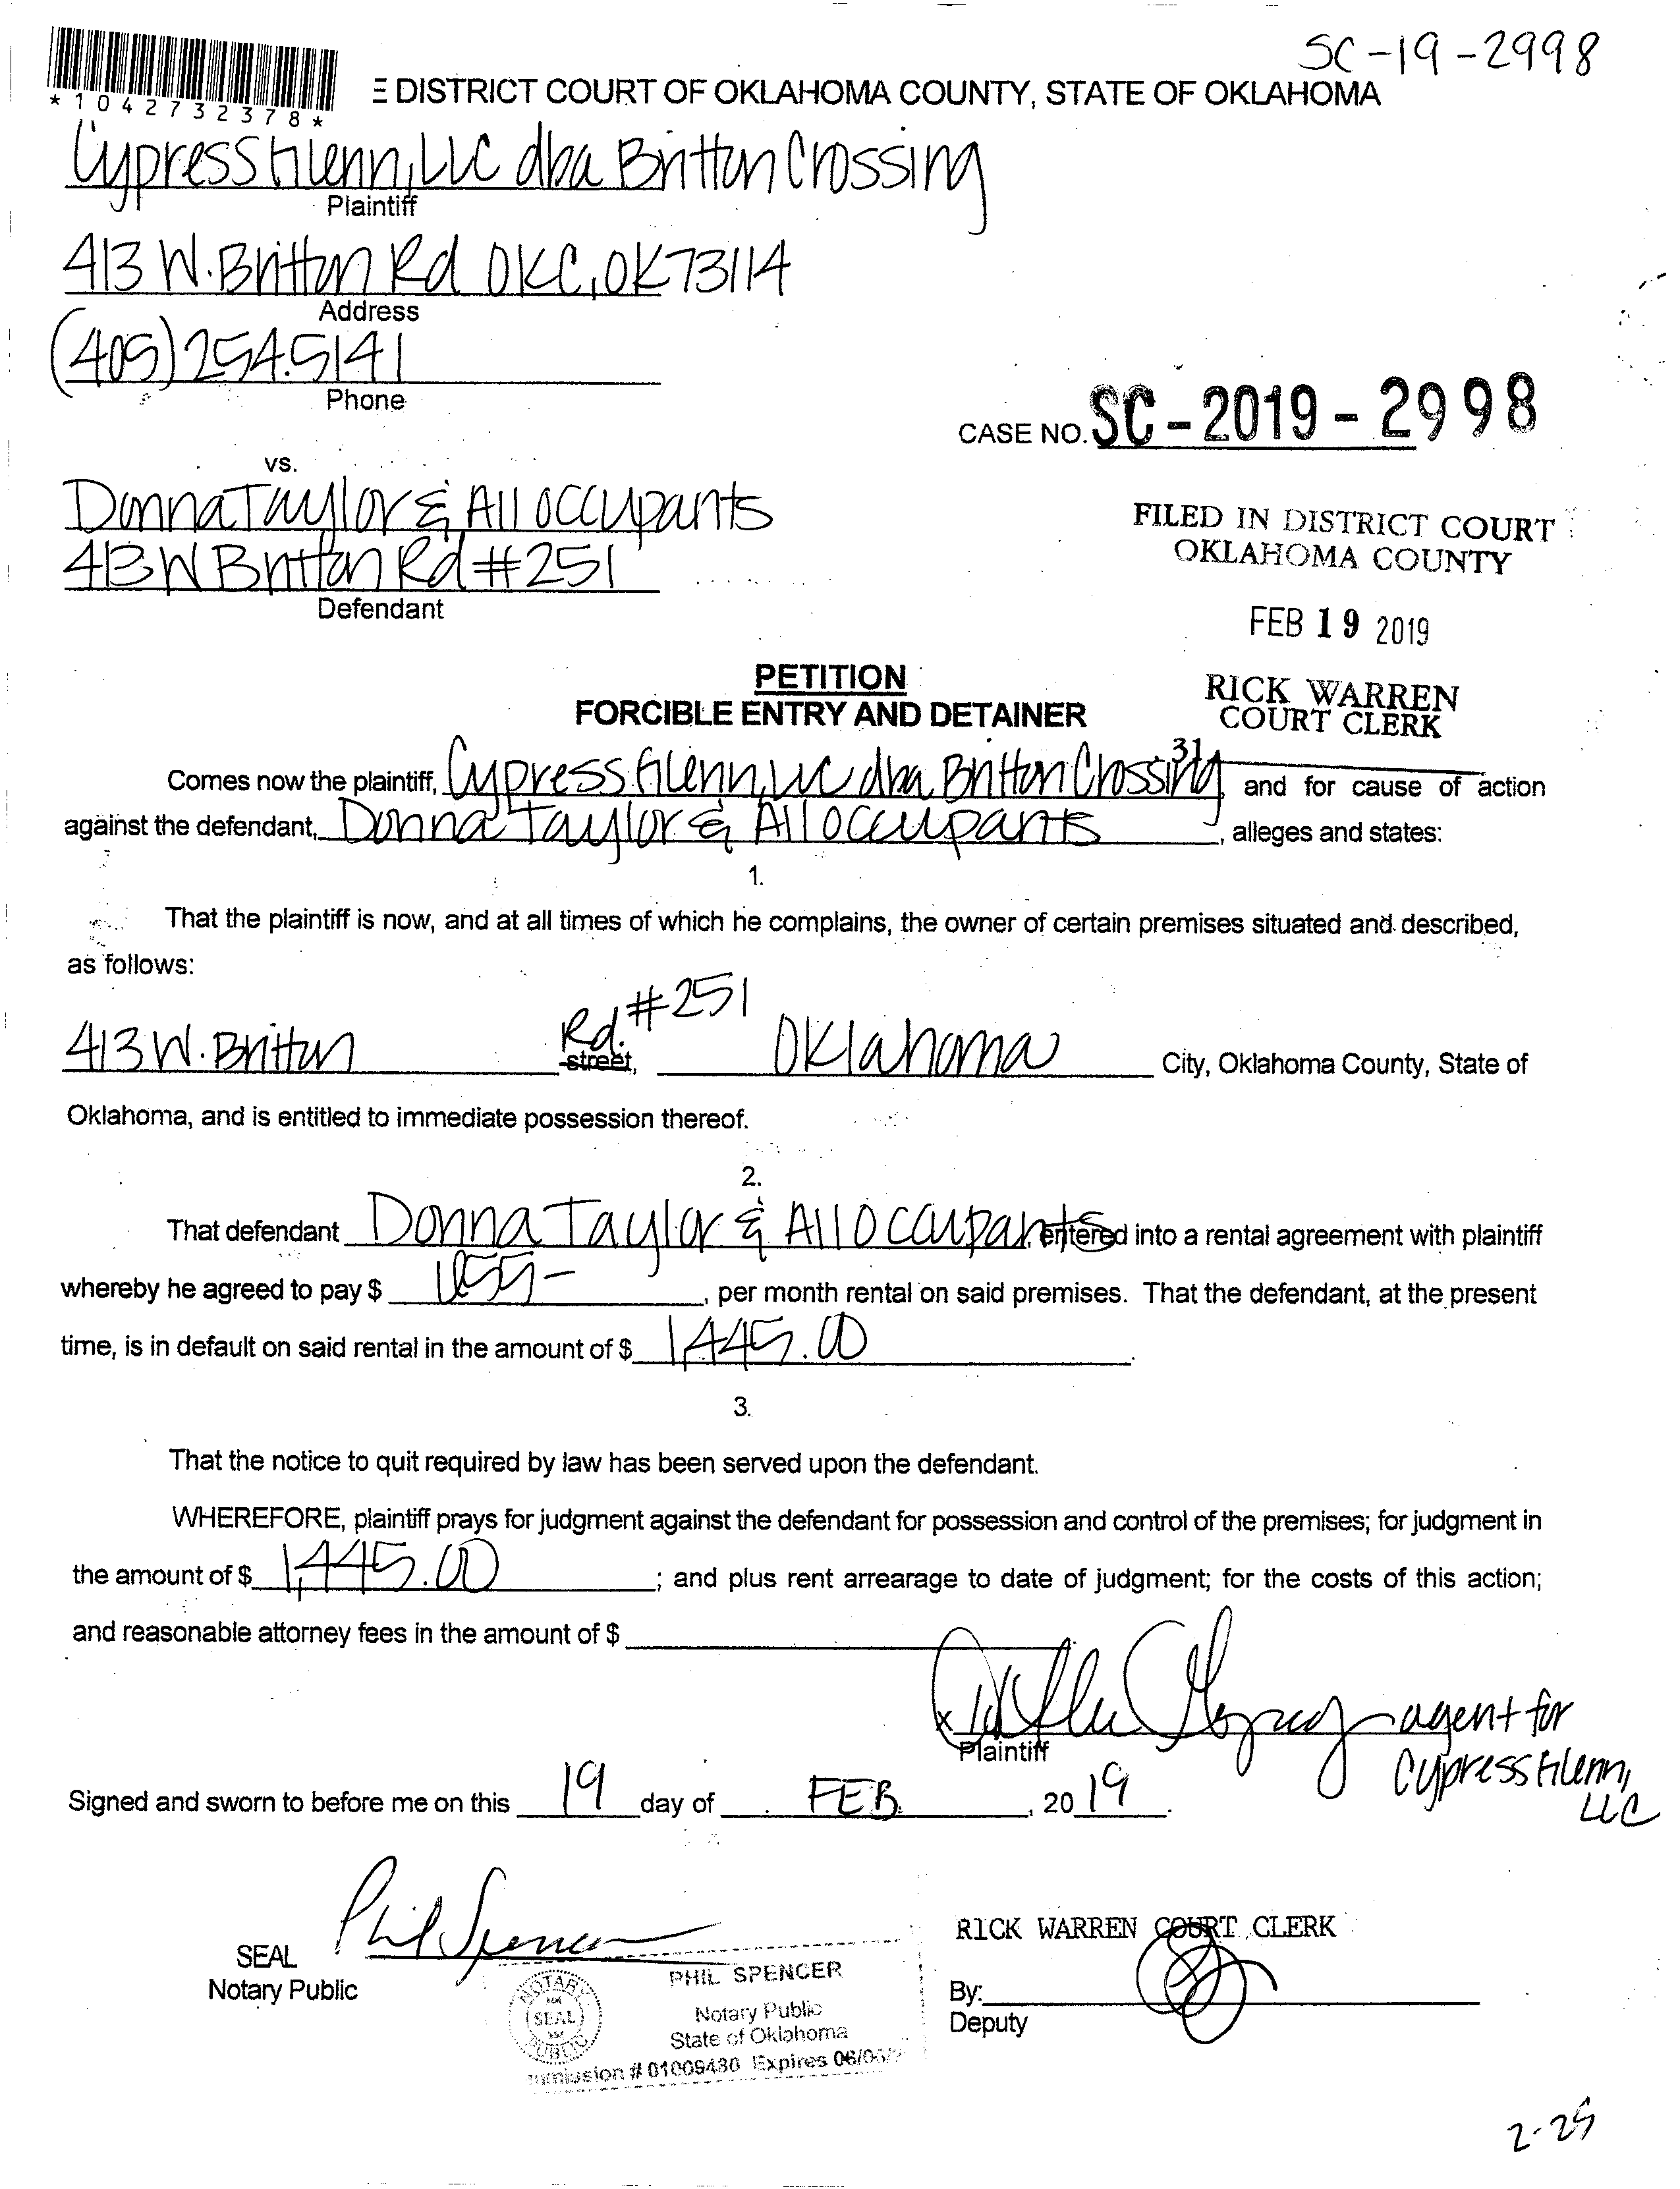 SC-19-2998
*1042732378*
E DISTRICT COURT OF OKLAHOMA COUNTY, STATE OF OKLAHOMA
Cypress Glenn, LLC dba Britton Crossing
Plaintiff
413 W. Britton Rd OKC, OK 73114
Address
(405) 254.5141
Phone
CASE NO. SC-2019-2998
vs.
Donna Taylor & All occupants
413 W Britton Rd #251
Defendant
FILED IN DISTRICT COURT
OKLAHOMA COUNTY
FEB 19 2019
RICK WARREN
COURT CLERK
31
PETITION
FORCIBLE ENTRY AND DETAINER
Comes now the plaintiff, Cypress Glenn, LLC dba Britton Crossing and for cause of action
against the defendant, Donna Taylor & All occupants, alleges and states:
1.
That the plaintiff is now, and at all times of which he complains, the owner of certain premises situated and described,
as follows:
413 W. Britton Rd. #251 street, Oklahoma City, Oklahoma County, State of
Oklahoma, and is entitled to immediate possession thereof.
2.
That defendant Donna Taylor & All occupants, entered into a rental agreement with plaintiff
whereby he agreed to pay $ , per month rental on said premises. That the defendant, at the present
time, is in default on said rental in the amount of $ 1,445.00.
3.
That the notice to quit required by law has been served upon the defendant.
WHEREFORE, plaintiff prays for judgment against the defendant for possession and control of the premises; for judgment in
the amount of $ 1,445.00; and plus rent arrearage to date of judgment; for the costs of this action;
and reasonable attorney fees in the amount of $
x agent for
Plaintiff
Cypress Glenn,
LLC
Signed and sworn to before me on this 19 day of FEB, 2019.
Phil Spencer
SEAL
Notary Public
NOTARY
SEAL
PUBLIC
PHIL SPENCER
Notary Public
State of Oklahoma
mmission # 01009480 Expires
RICK WARREN COURT CLERK
By:
Deputy
2-25